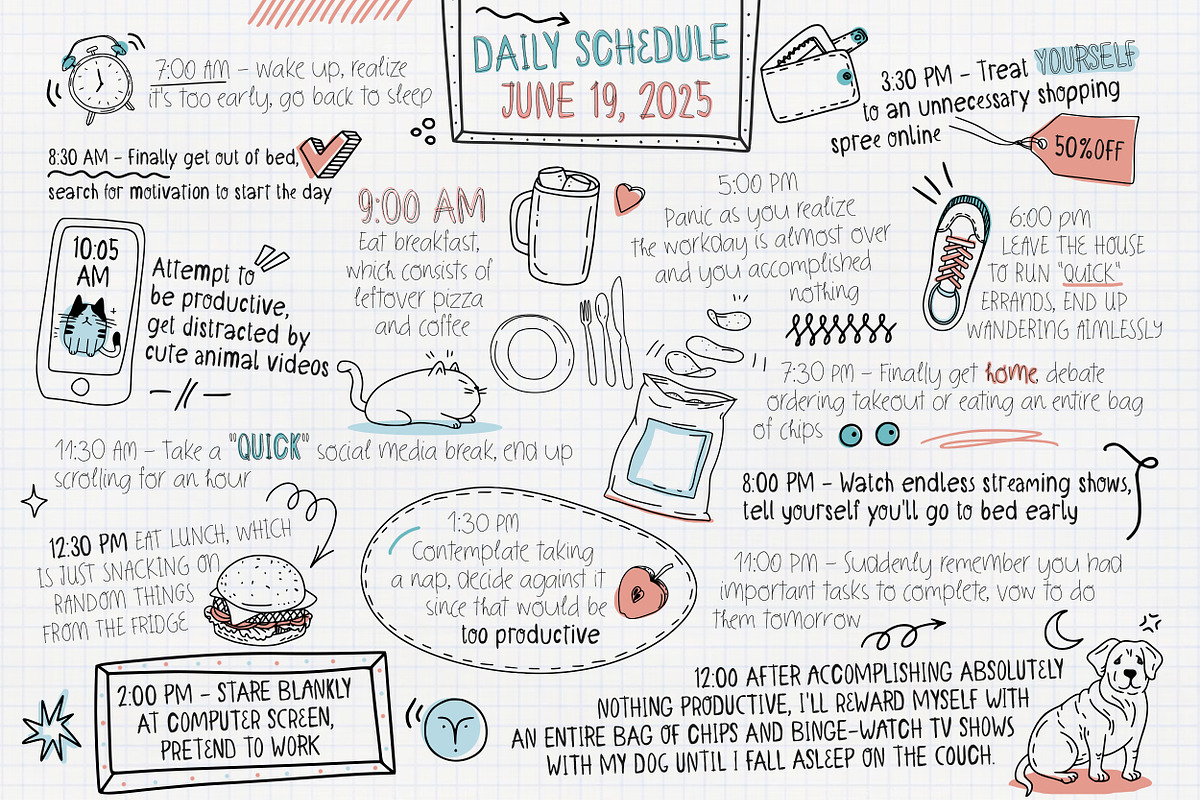 DAILY SCHEDULE
JUNE 19, 2025
7:00 AM – wake up, realize
it's too early, go back to sleep
8:30 AM – Finally get out of bed,
search for motivation to start the day
9:00 AM
Eat breakfast,
which consists of
leftover pizza
and coffee
10:05
AM
Attempt to
be productive,
get distracted by
cute animal videos
11:30 AM – Take a "QUICK" social media break, end up
scrolling for an hour
12:30 PM EAT LUNCH, WHICH
IS JUST SNACKING ON
RANDOM THINGS
FROM THE FRIDGE
1:30 PM
Contemplate taking
a nap, decide against it
since that would be
too productive
2:00 PM – STARE BLANKLY
AT COMPUTER SCREEN,
PRETEND TO WORK
3:30 PM – Treat YOURSELF
to an unnecessary shopping
spree online
50% OFF
5:00 PM
Panic as you realize
the workday is almost over
and you accomplished
nothing
6:00 pm
LEAVE THE HOUSE
TO RUN "QUICK"
ERRANDS, END UP
WANDERING AIMLESSLY
7:30 PM – Finally get home, debate
ordering takeout or eating an entire bag
of chips
8:00 PM – Watch endless streaming shows,
tell yourself you'll go to bed early
11:00 PM – Suddenly remember you had
important tasks to complete, vow to do
them tomorrow
12:00 AFTER ACCOMPLISHING ABSOLUTELY
NOTHING PRODUCTIVE, I'LL REWARD MYSELF WITH
AN ENTIRE BAG OF CHIPS AND BINGE-WATCH TV SHOWS
WITH MY DOG UNTIL I FALL ASLEEP ON THE COUCH.